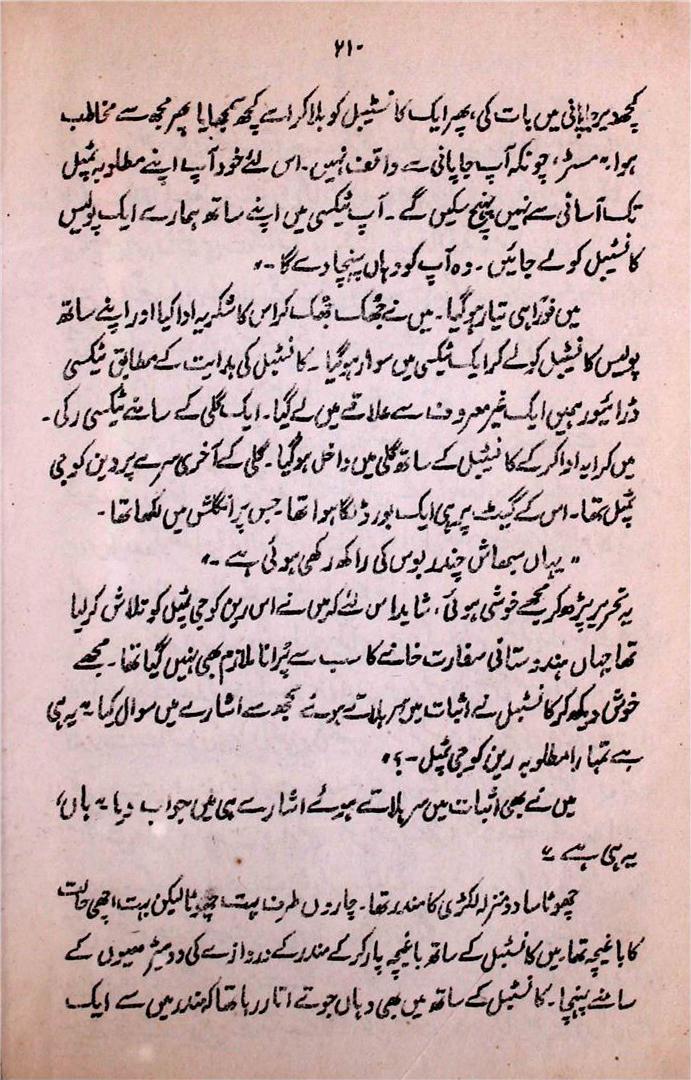 ۲۱۰
کچھ دیر جاپانی میں بات کی، پھر ایک کانسٹیبل کو بلا کر اسے کچھ سمجھایا پھر مجھ سے مخاطب
ہوا۔ "مسٹر، چونکہ آپ جاپانی سے واقف نہیں۔ اس لئے خود آپ اپنے مطلوبہ ٹمپل
تک آسانی سے نہیں پہنچ سکیں گے۔ آپ ٹیکسی میں اپنے ساتھ ہمارے ایک پولیس
کانسٹیبل کو لے جائیں۔ وہ آپ کو وہاں پہنچا دے گا۔"
میں فوراً ہی تیار ہو گیا۔ میں نے جھک جھک کر اس کا شکریہ ادا کیا اور اپنے ساتھ
پولیس کانسٹیبل کو لے کر ایک ٹیکسی میں سوار ہو گیا۔ کانسٹیبل کی ہدایت کے مطابق ٹیکسی
ڈرائیور ہمیں ایک غیر معروف سے علاقے میں لے گیا۔ ایک گلی کے سامنے ٹیکسی رکی۔
میں کرایہ ادا کر کے کانسٹیبل کے ساتھ گلی میں داخل ہو گیا۔ گلی کے آخری سرے پر رین کوجی
ٹمپل تھا۔ اس کے گیٹ پر ہی ایک بورڈ لگا ہوا تھا جس پر انگلش میں لکھا تھا۔
"یہاں سبھاش چندر بوس کی راکھ رکھی ہوئی ہے۔"
یہ تحریر پڑھ کر مجھے خوشی ہوئی، شاید اس لئے کہ میں نے اس رین کوجی ٹمپل کو تلاش کر لیا
تھا جہاں ہندوستانی سفارت خانے کا سب سے پرانا ملازم بھی نہیں گیا تھا۔ مجھے
خوش دیکھ کر کانسٹیبل نے اثبات میں سر ہلاتے ہوئے مجھ سے اشارے میں سوال کیا "یہ ہی
ہے تمہارا مطلوبہ رین کوجی ٹمپل۔؟"
میں نے بھی اثبات میں سر ہلاتے ہوئے اشارے ہی میں جواب دیا "ہاں،
یہ ہی ہے۔"
چھوٹا سا دو منزلہ لکڑی کا مندر تھا۔ چاروں طرف بہت چھوٹا لیکن بہت اچھی حالت
کا باغیچہ تھا۔ میں کانسٹیبل کے ساتھ باغیچہ پار کر کے مندر کے دروازے کی دو سیڑھیوں کے
سامنے پہنچا۔ کانسٹیبل کے ساتھ میں بھی وہاں جوتے اتار رہا تھا کہ مندر میں سے ایک